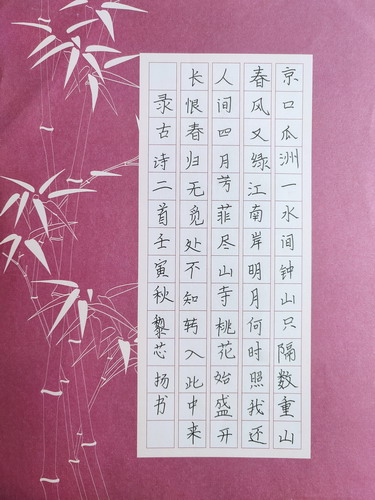 京口瓜洲一水间钟山只隔数重山
春风又绿江南岸明月何时照我还
人间四月芳菲尽山寺桃花始盛开
长恨春归无觅处不知转入此中来
录古诗二首壬寅秋黎芯扬书